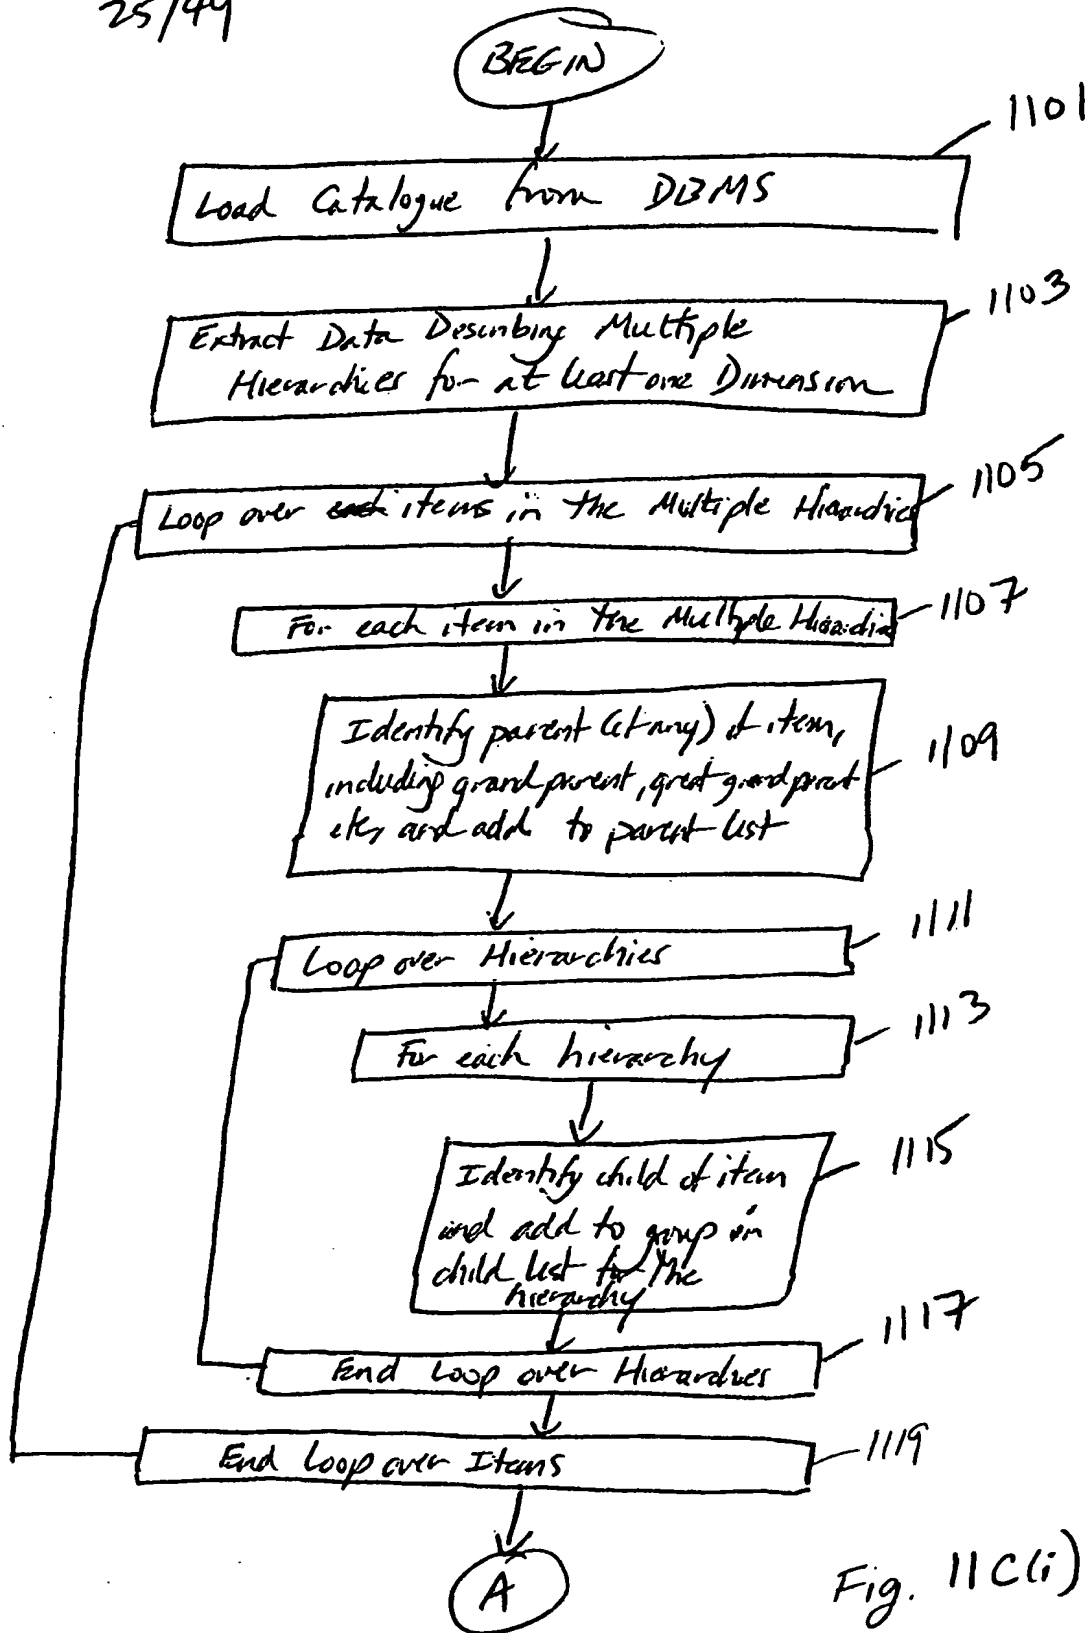 25/49
BEGIN
1101
Load Catalogue from DBMS
1103
Extract Data Describing Multiple
Hierarchies for at least one Dimension
1105
Loop over items in the Multiple Hierarchies
1107
For each item in the Multiple Hierarchies
1109
Identify parent (if any) of item,
including grandparent, great grandparent
etc, and add to parent list
1111
Loop over Hierarchies
1113
For each hierarchy
1115
Identify child of item
and add to group in
child list for the
hierarchy
1117
End Loop over Hierarchies
1119
End Loop over Items
A
Fig. 11C(i)